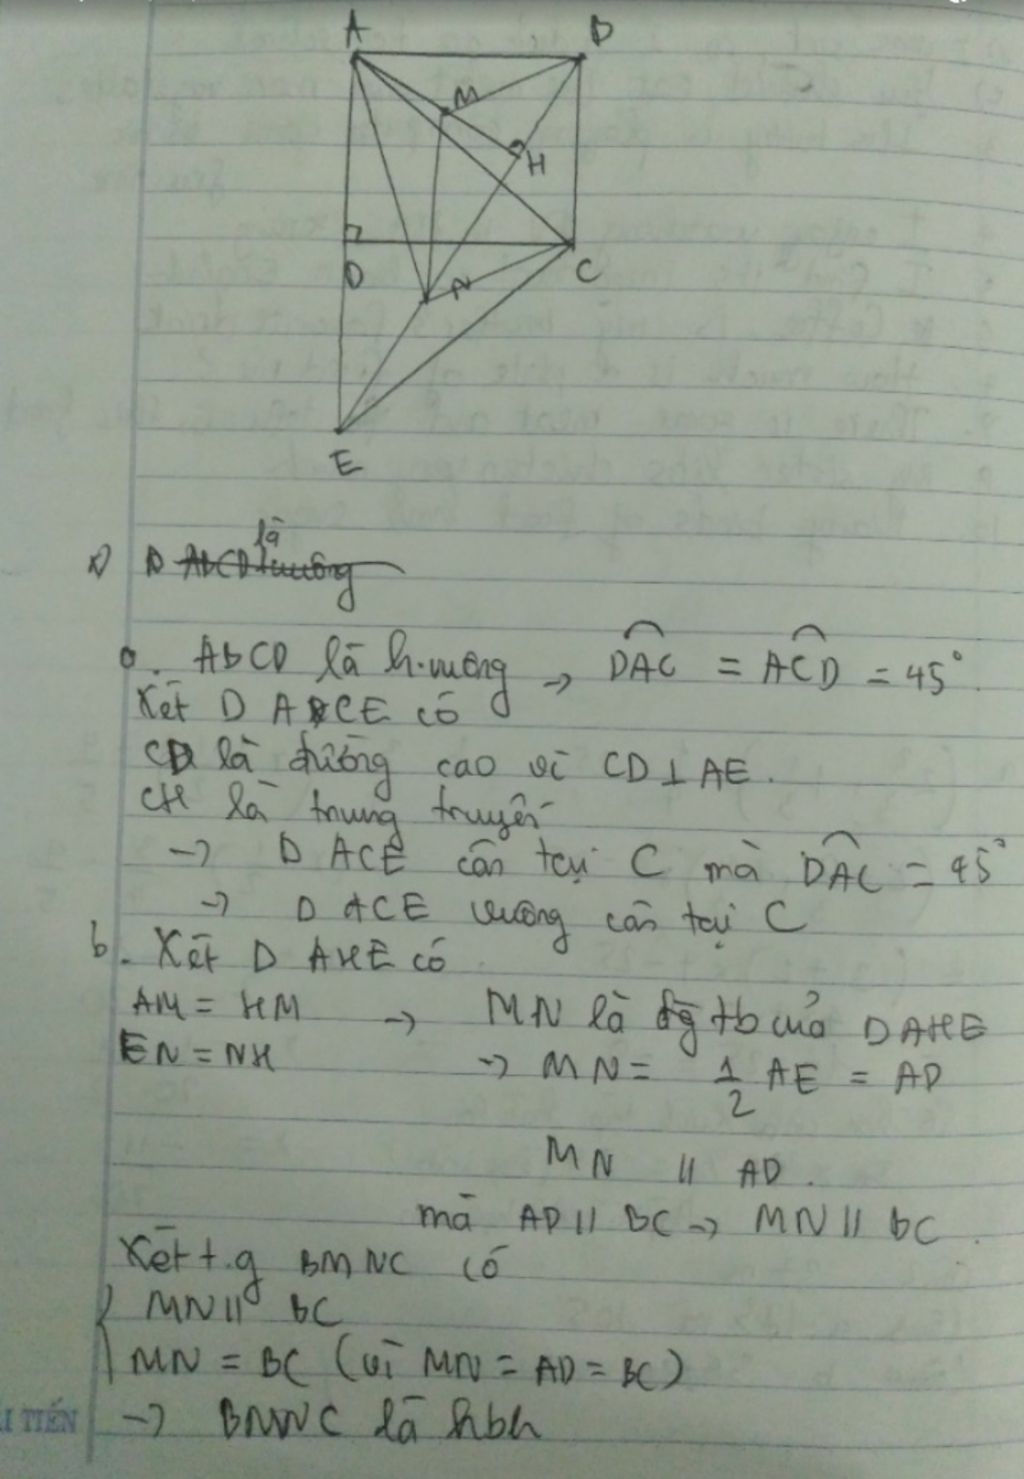 A B
M
H
D C
N
E
a) D ABCD là vuông
a. ABCD là h.vuông → DAC = ACD = 45°.
Xét D ACE có
CD là đường cao vì CD ⊥ AE.
CH là trung truyến
→ D ACE cân tại C mà DAC = 45°
→ D ACE vuông cân tại C
b. Xét D AHE có
AM = HM → MN là đg tb của D AHE
EN = NH → MN = 1/2 AE = AD
MN // AD.
mà AD // BC → MN // BC.
Xét t.g BMNC có
{ MN // BC
MN = BC (vì MN = AD = BC)
I TIẾN → BMNC là hbh